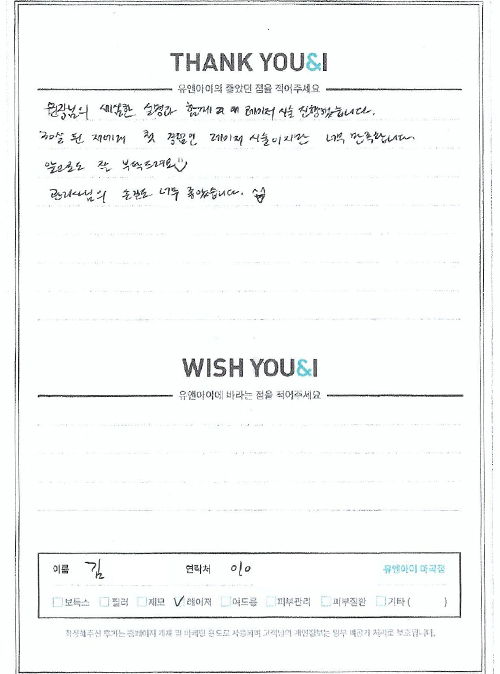 THANK YOU&I
유앤아이의 좋았던 점을 적어주세요
원장님의 세심한 설명과 함께 레이저 시술 진행했습니다.
30살 된 첫 경험인 레이저 시술이지만 너무 만족합니다.
앞으로도 잘 부탁드려요
관리사님의 손길도 너무 좋았습니다.
WISH YOU&I
유앤아이에 바라는 점을 적어주세요
이름 김 연락처 010 유앤아이 마곡점
보톡스 필러 제모 레이저 여드름 피부관리 피부질환 기타 ( )
작성해주신 후기는 홈페이지 게재 및 마케팅 용도로 사용되며 고객님의 개인정보는 일부 비공개 처리로 보호됩니다.